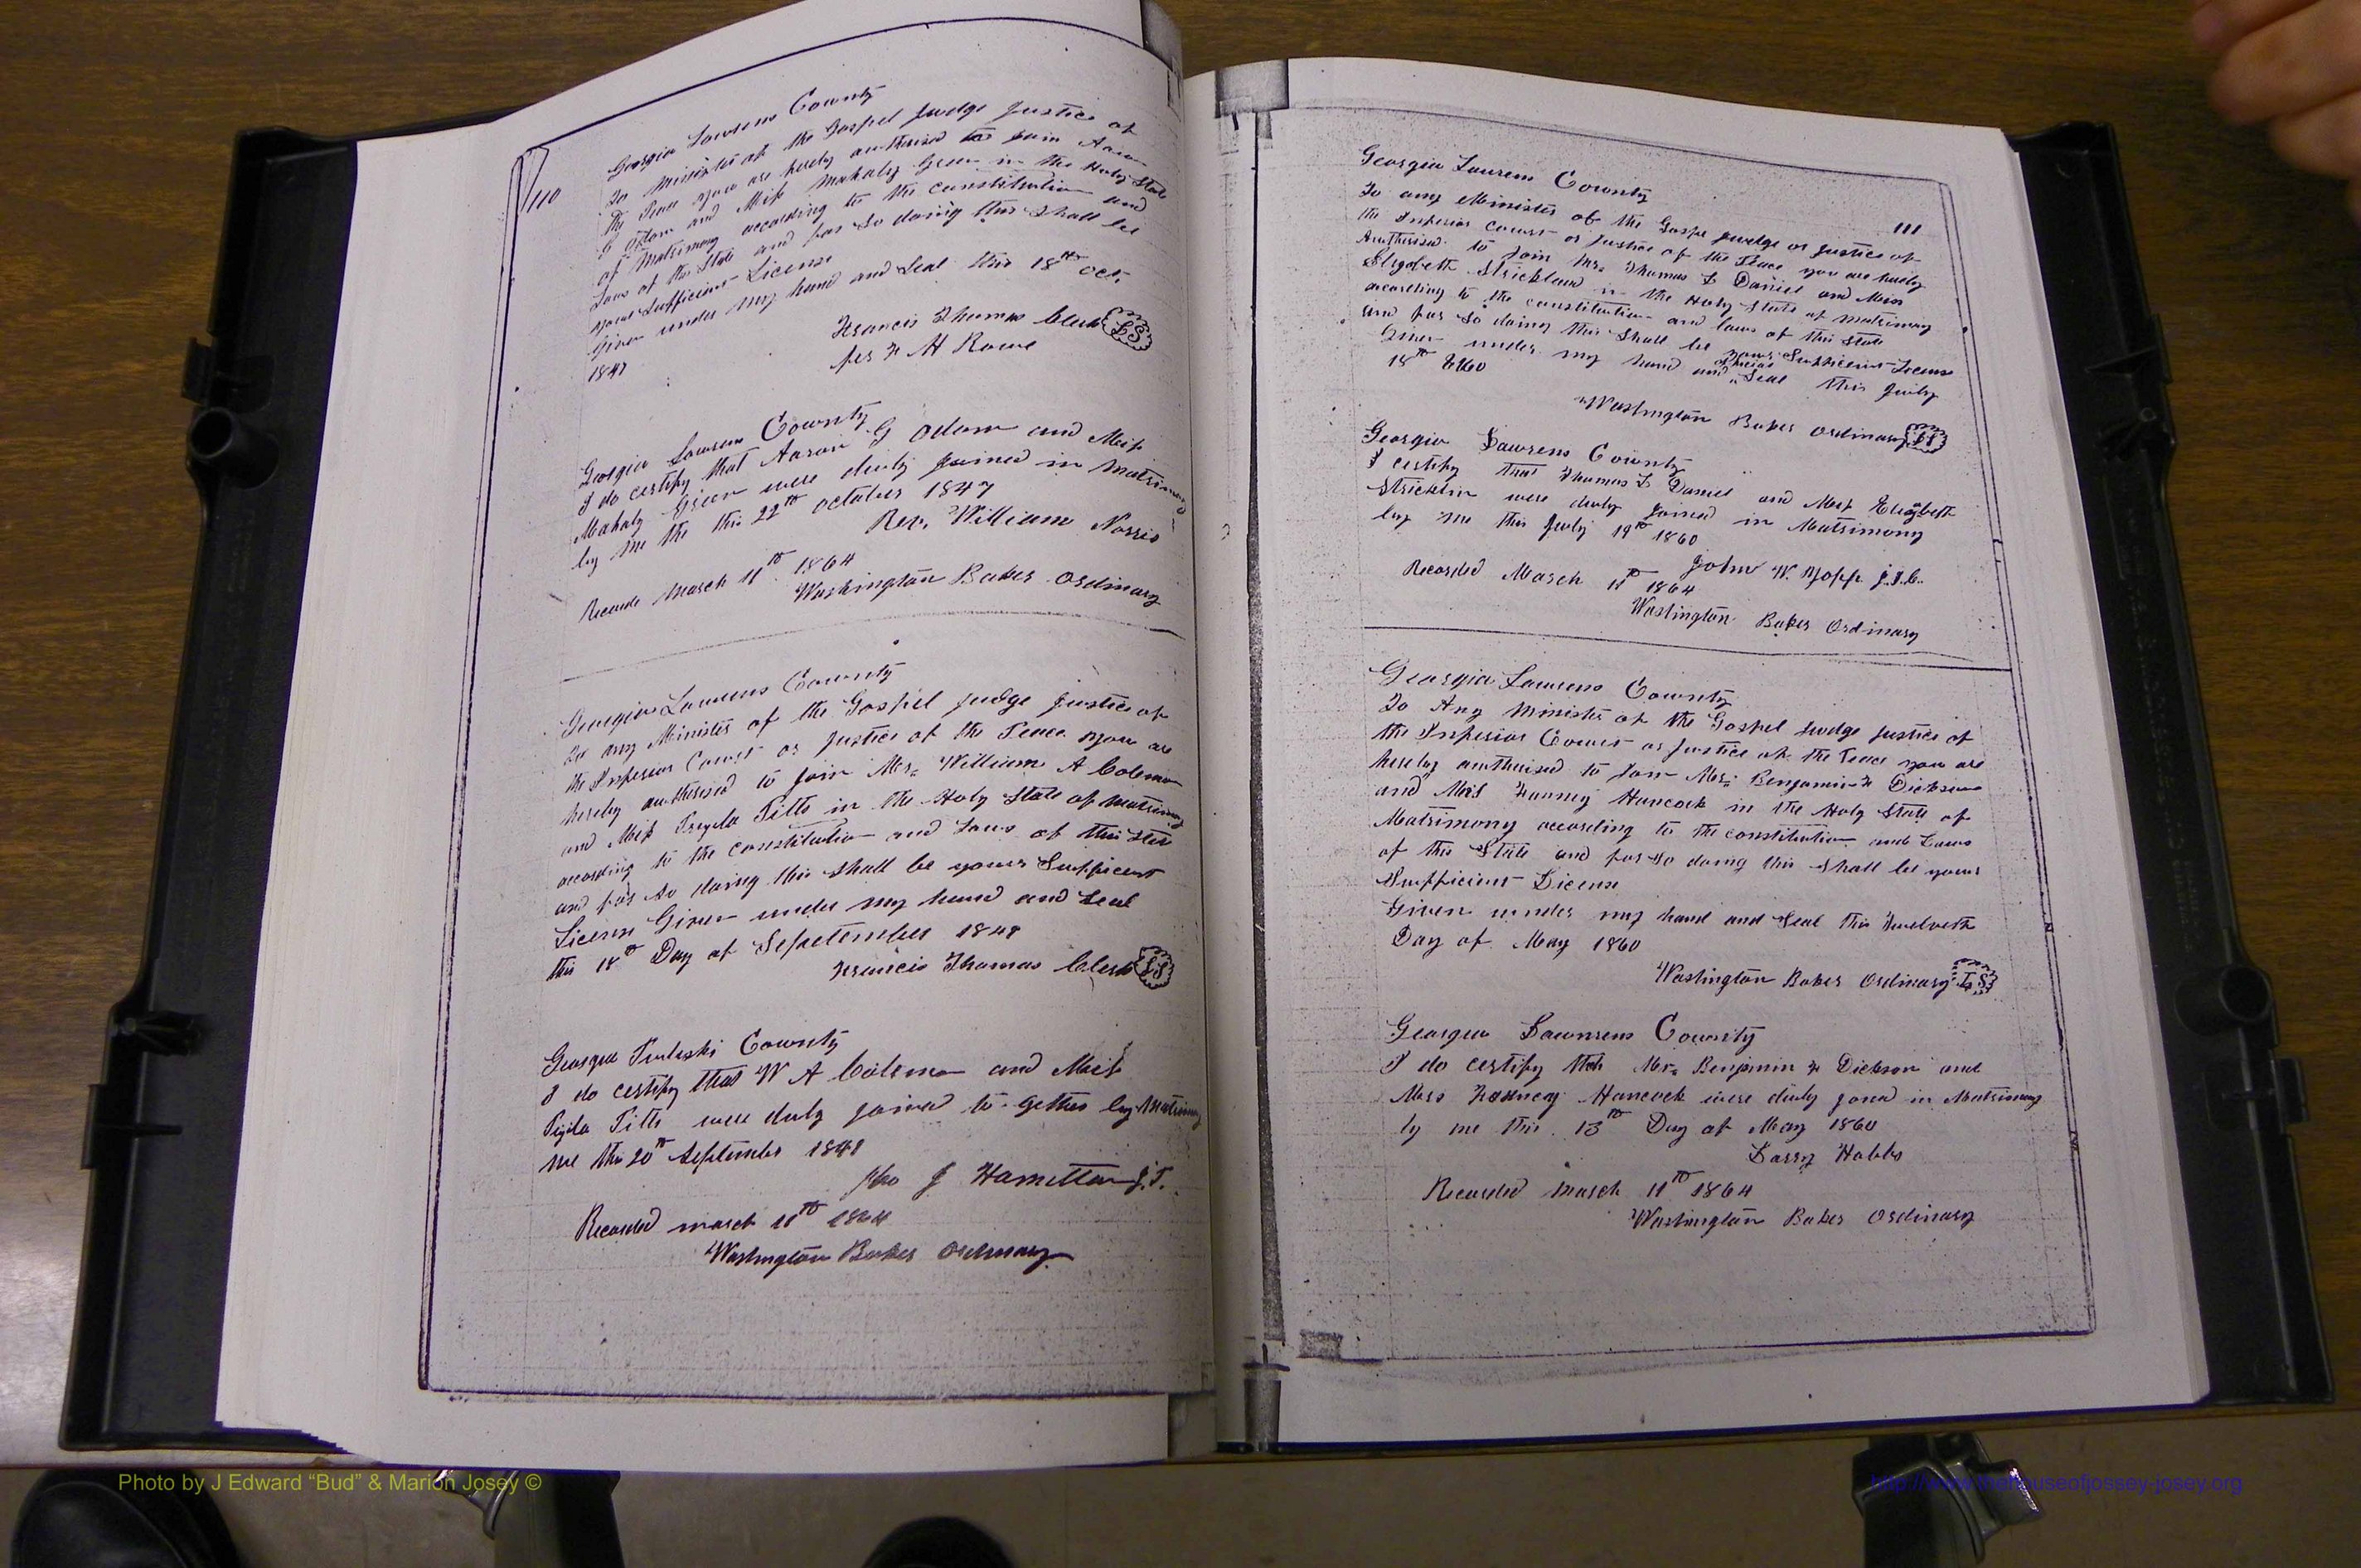 110
Georgia Lawrens County
To Minister of the Gospel Judge Justice of
the Peace you are hereby authorised to join Aaron
G Odom and Miss Mahaly Green in the Holy State
of Matrimony according to the constitution and
Laws of the State and for so doing this shall be
your sufficient License
Given under my hand and Seal this 18th Oct.
1847
Francis Thomas Clerk LS
per F H Rowe
Georgia Lawrens County
I do certify that Aaron G Odom and Miss
Mahaly Green were duly joined in Matrimony
by me the this 22th October 1847
Rev. William Norris
Recorde March 11th 1864
Washington Baker Ordinary
Georgia Lawrens County
To any Minister of the Gospel Judge Justice of
the Inferior Court or Justice of the Peace you are
hereby authorised to join Mr. William A Coleman
and Miss Pitts in the Holy State of Matrimony
according to the constitution and Laws of this State
and for so doing this shall be yours Sufficient
License Given under my hand and Seal
this 18th Day of September 1848
Francis Thomas Clerk LS
Georgia Pulaski County
I do certify that W A Coleman and Miss
Pitts were duly joined to-gether by Matrimony
me this 20th September 1848
J Hamilton J.P.
Recorded march 11th 1864
Washington Baker Ordinary
111
Georgia Laurens County
To any Minister of the Gospe Judge or Justice of
the Inferior Court or Justice of the Peace you are hereby
Authorised to Join Mr. Thomas F Daniel and Miss
Elizabeth Strickland in the Holy State of matrimony
according to the constitution and laws of this State
and for so doing this Shall be yours Sufficient License
Given under my hand and official Seal this July
18th 1860
Washington Baker Ordinary LS
Georgia Lawrens County
I certify that Thomas F Daniel and Miss Elizabeth
Stricklin were duly joined in Matrimony
by me this July 19th 1860
John W. Yopp J.I.C.
Recorded March 11th 1864
Washington Baker Ordinary
Georgia Lawrens County
To Any Minister of the Gospel Judge Justice of
the Inferior Court or Justice of the Peace you are
hereby authorised to Join Mr. Benjamin F Dickson
and Miss Hancock in the Holy State of
Matrimony according to the constitution and Laws
of this State and for so doing this shall be yours
Sufficient License
Given under my hand and Seal this twelveth
Day of May 1860
Washington Baker Ordinary LS
Georgia Lawrens County
I do certify that Mr. Benjamin F Dickson and
Miss Hancock were duly joned in Matrimony
by me this 13th Day of May 1860
Larry Hobbs
Recorded March 11th 1864
Washington Baker Ordinary
Photo by J Edward “Bud” & Marion Josey ©
http://www.thehouseofjossey-josey.org